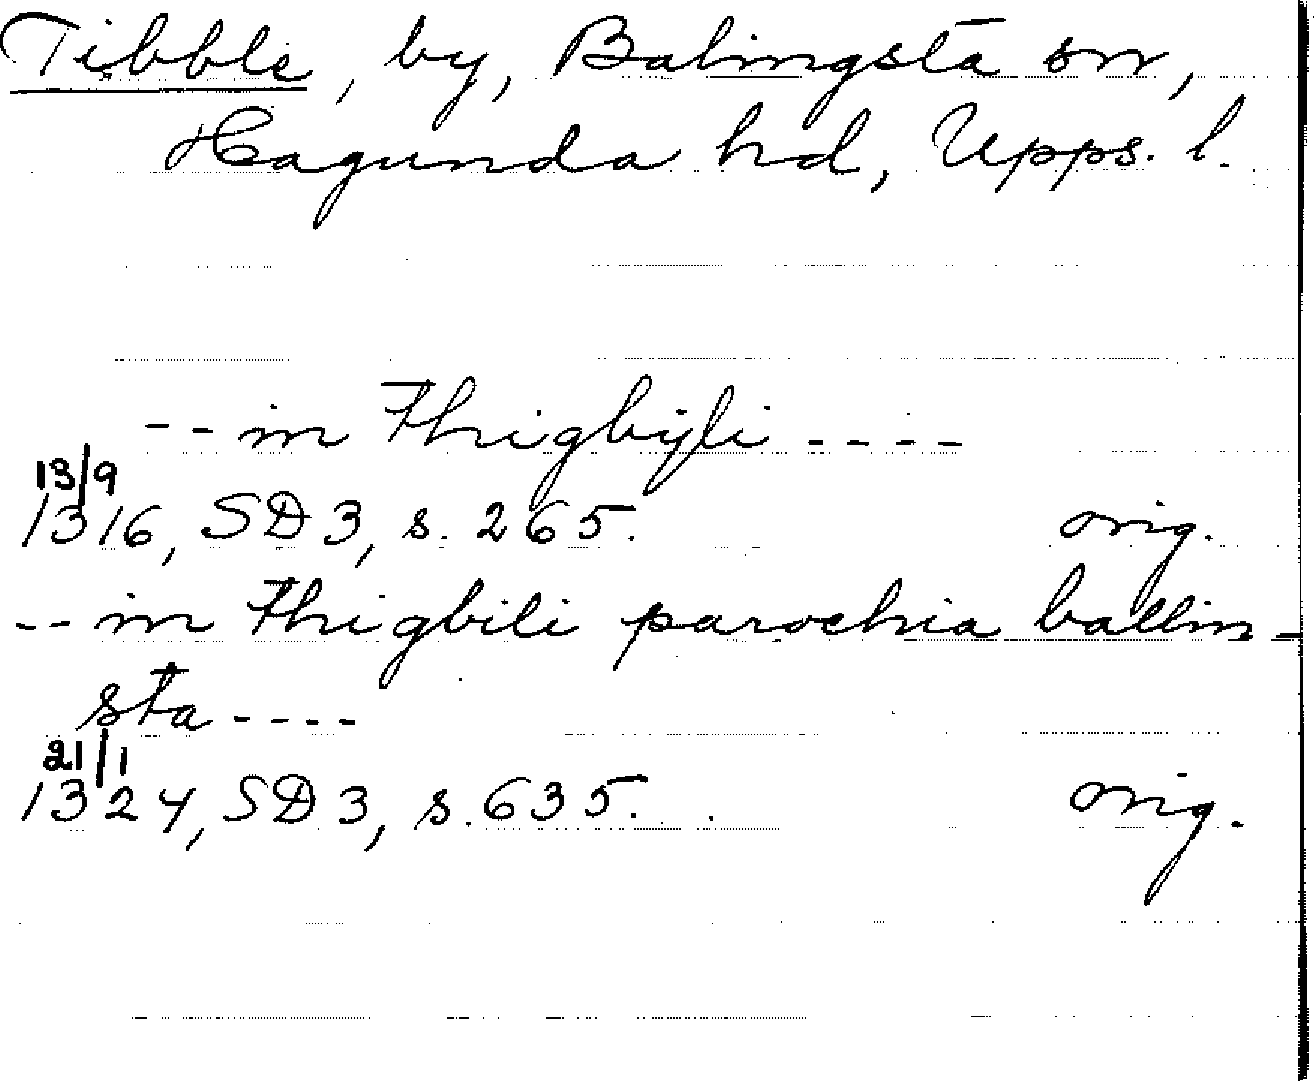 Tibble, by, Balingsta sn,
Hagunda hd, Upps. l.
-- in Thigbyli ----
13/9
1316, SD 3, s. 265. orig.
-- in Thigbili parochia ballin-
sta ----
21/1
1324, SD 3, s. 635. orig.